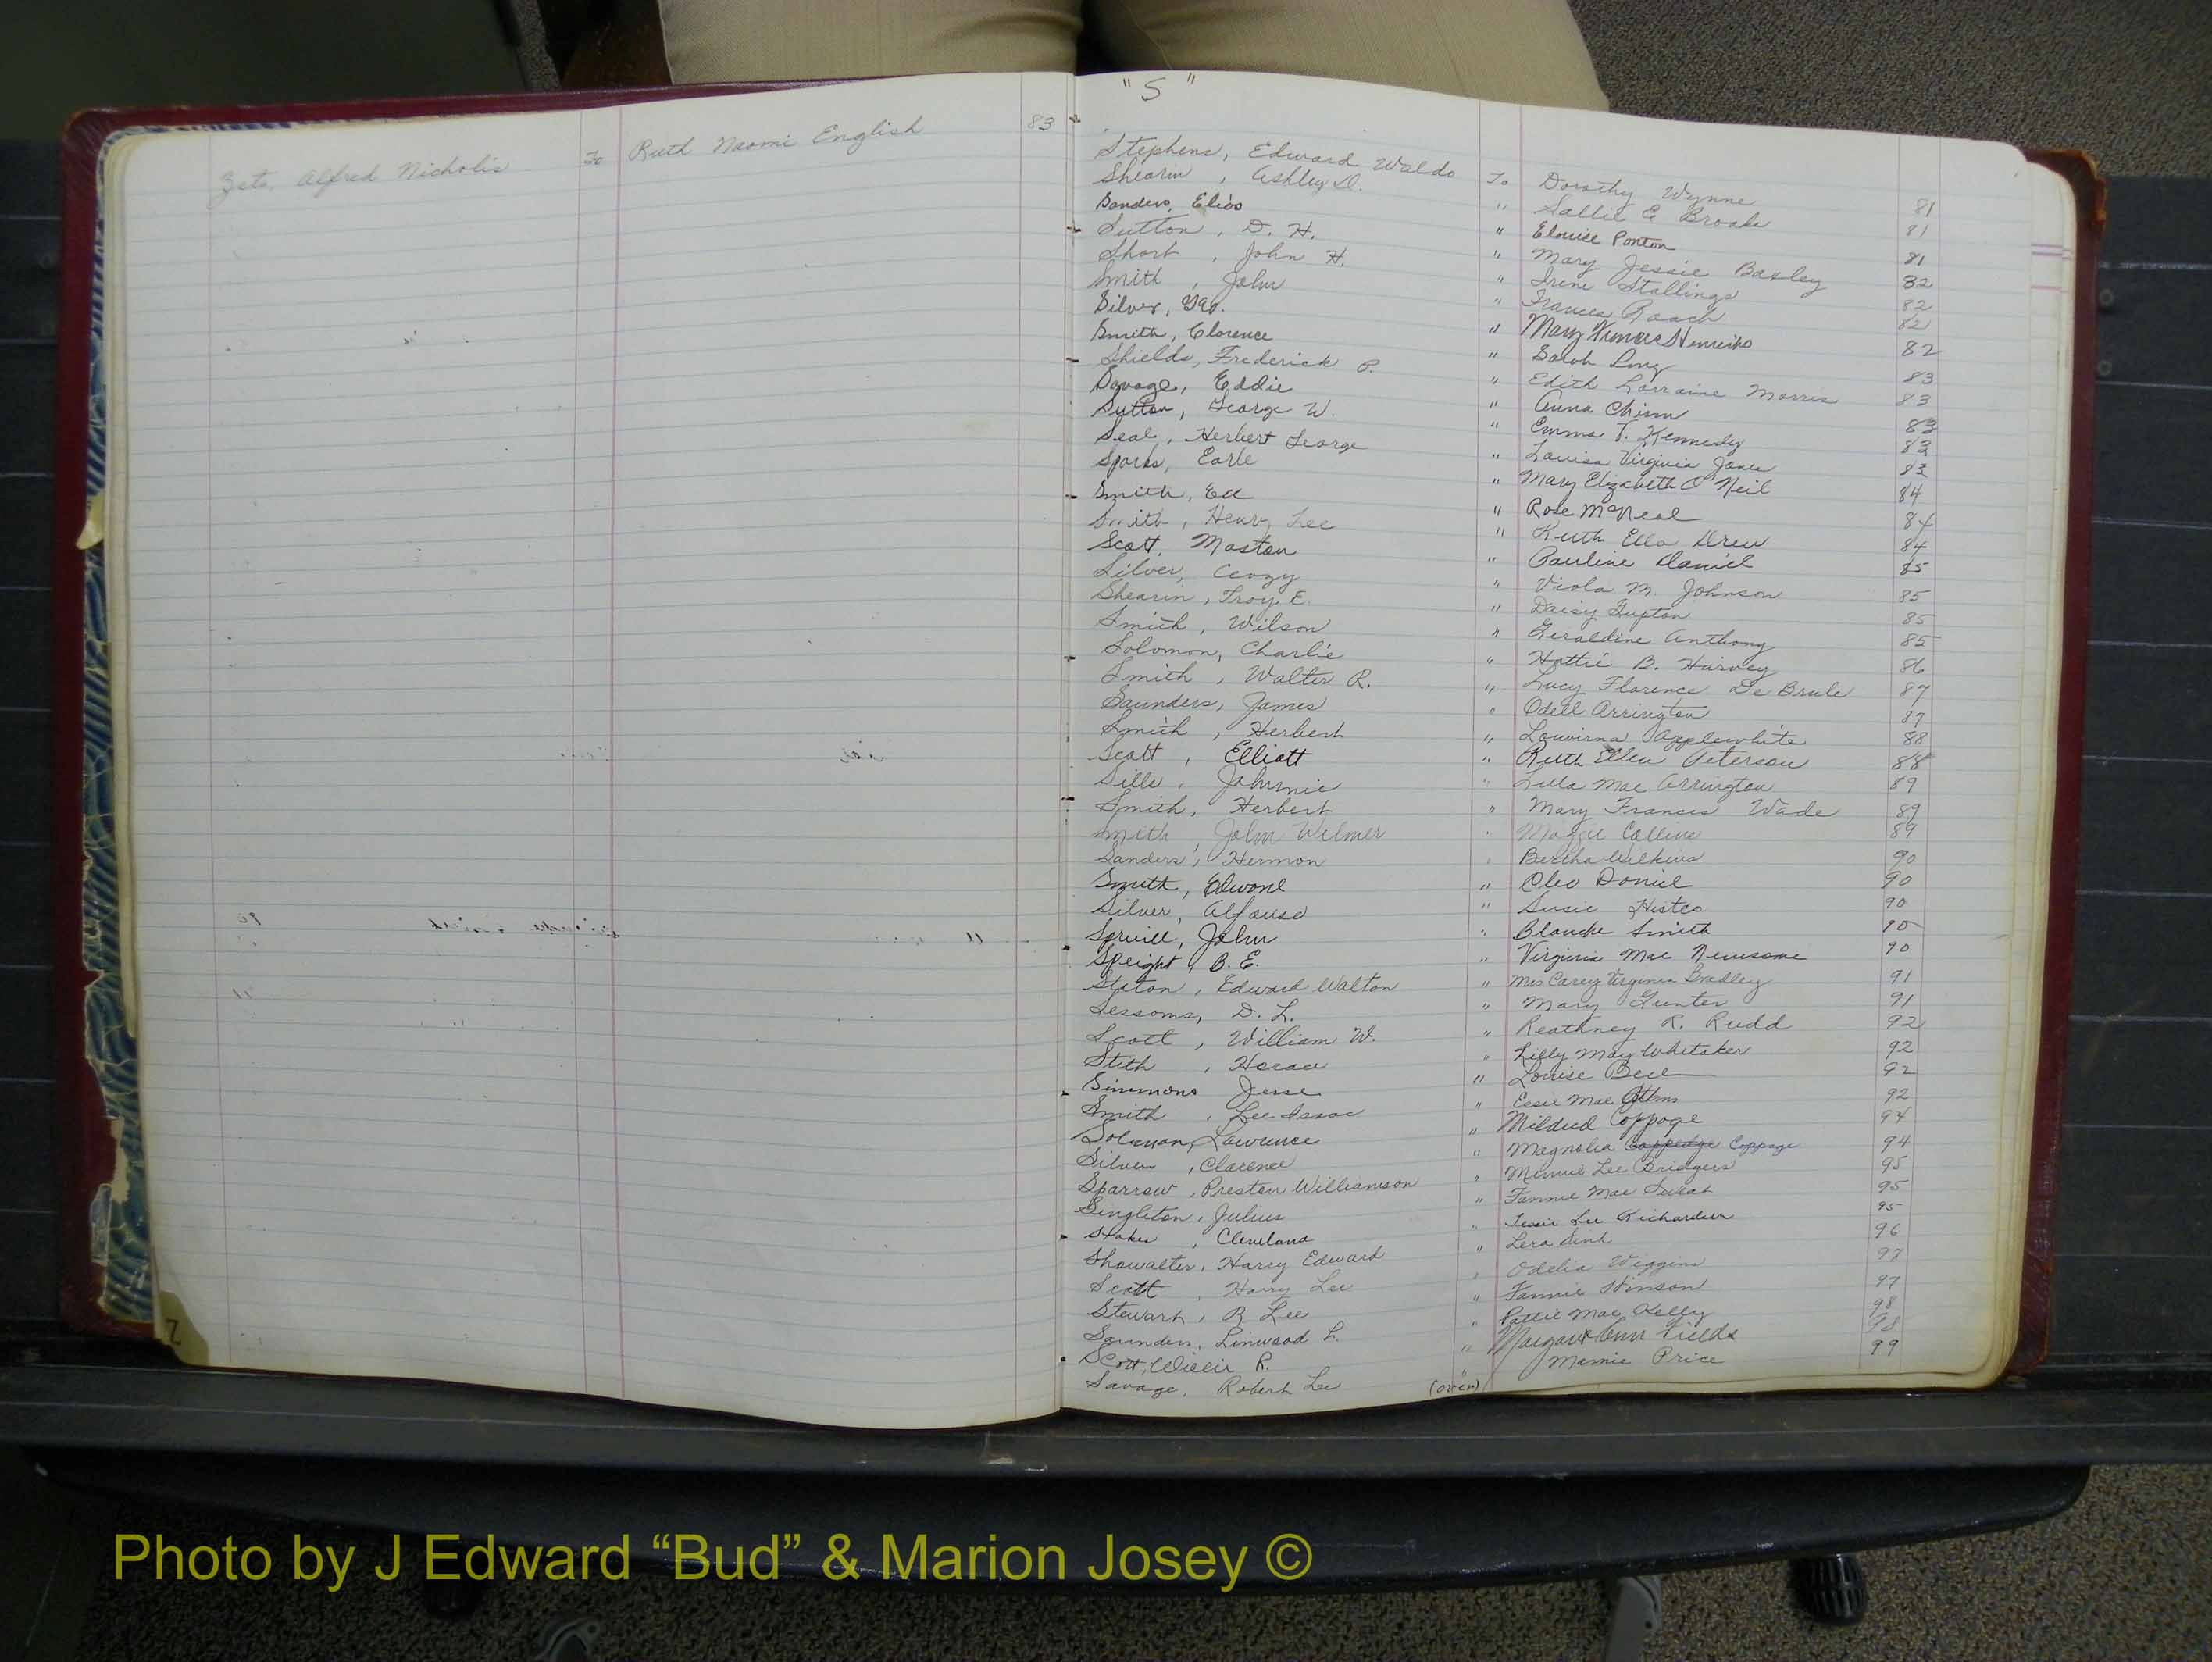 Alfred Nicholis To Ruth Naomi English 83
"S"
Stephens, Edward Waldo To Dorothy Wynne 81
Shearin, Ashley D. " Sallie E Brooke 81
Sanders, Elias " Elouise Ponton 81
Sutton, D. H. " Mary Jessie Baxley 82
Short, John H. " Irene Stallings 82
Smith, John " Frances Roach 82
Silver, Geo. " Mary 82
Smith, Clarence " Sarah Long 83
Shields, Frederick P. " Edith Lorraine Morris 83
Savage, Eddie " Anna Chinn 83
Sutton, George W. " Emma T. Kennedy 83
Seal, Herbert George " Louisa Virginia Jones 83
Sparks, Earle " Mary Elizabeth O'Neil 84
Smith, Ed " Rose McNeal 84
Smith, Henry Lee " Ruth Ella Drew 84
Scott, Maston " Pauline Daniel 85
Silver, " Viola M. Johnson 85
Shearin, Troy E. " Daisy Gupton 85
Smith, Wilson " Geraldine Anthony 85
Solomon, Charlie " Hattie B. Harvey 86
Smith, Walter R. " Lucy Florence De Brule 87
Saunders, James " Odell Arrington 87
Smith, Herbert " Louvirna Applewhite 88
Scott, Elliott " Ruth Ellen Peterson 88
Sills, Johnnie " Lula Mae Arrington 89
Smith, Herbert " Mary Frances Wade 89
Smith, John Wilmer " Maggie Collins 89
Sanders, Hermon " Bertha Wilkins 90
Smith, Edward " Cleo Daniel 90
Silver, Alfonso " Susie 90
Spruill, John " Blanche Smith 90
Speight, B. E. " Virginia Mae Newsome 90
Staton, Edward Walton " Mrs Carey Virginia Bradley 91
Sessoms, D. L. " Mary Gunter 91
Scott, William W. " Reathney R. Rudd 92
Stith, Horace " Lilly May Whitaker 92
Simmons Jesse " Louise Bell 92
Smith, Lee Isaac " Essie Mae 92
Solomon, Lawrence " Mildred Coppage 94
Silver, Clarence " Magnolia Coppedge Coppage 94
Sparrow, Preston Williamson " Minnie Lee Bridgers 95
Singleton, Julius " Fannie Mae 95
Stokes, Cleveland " Lee Richardson 95
Showalter, Harry Edward " Lera 96
Scott, Harry Lee " Odelia Wiggins 97
Stewart, R Lee " Fannie Hinson 97
Saunders, Linwood L. " Mae Kelly 98
Scott, Willie R. " Margaret Ann Fields 98
Savage, Robert Lee (over) " Mamie Price 99
Z
Photo by J Edward “Bud” & Marion Josey ©